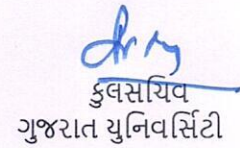 કુલસચિવ
ગુજરાત યુનિવર્સિટી